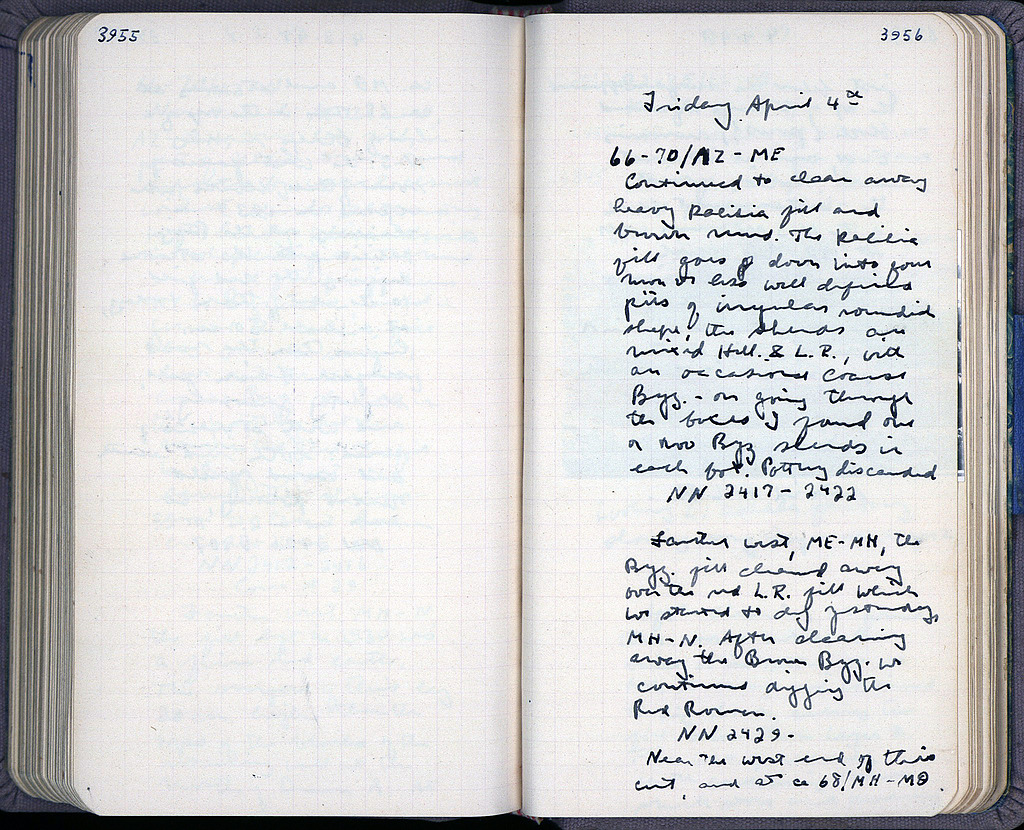 3955
3956
Friday April 4th
66-70/MZ-ME
Continued to clear away
heavy poros fill and
brown mud. The
fill goes down into four
more or less well defined
pits of irregular rounded
shape; the sherds are
mixed Hell. & L.R., with
an occasional Coarse
Byz. - on going through
the boxes I found one
or two Byz sherds in
each box. Pottery discarded
NN 2417 - 2422
Farther west, ME-MH, the
Byz. fill cleared away
over the red L.R. fill which
we started to dig yesterday,
MH-N. After clearing
away the Brown Byz. we
continued digging the
Red Roman.
NN 2429-
Near the west end of this
cut, and at ca 68/MH-MΘ